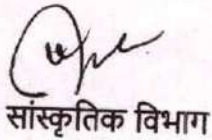 सांस्कृतिक विभाग